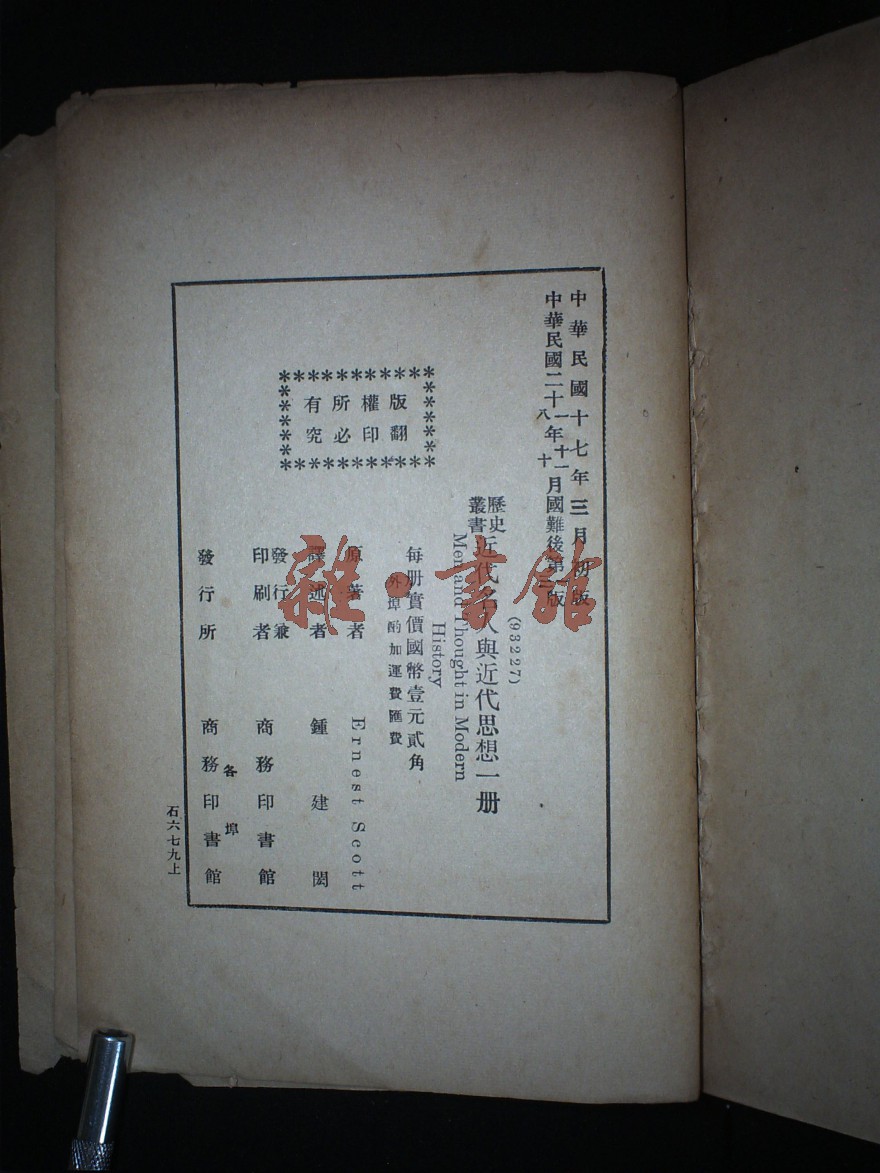 中華民國十七年三月初版
中華民國二十一八年十一十月國難後第三版
(93227)
歷史叢書 近代名人與近代思想一册
Men and Thought in Modern
History
每册實價國幣壹元貳角
外埠酌加運費匯費
版權所有
翻印必究
原著者 Ernest Scott
譯述者 鍾建閎
發行兼印刷者 商務印書館
發行所 各埠 商務印書館
石六七九上
雜·書館